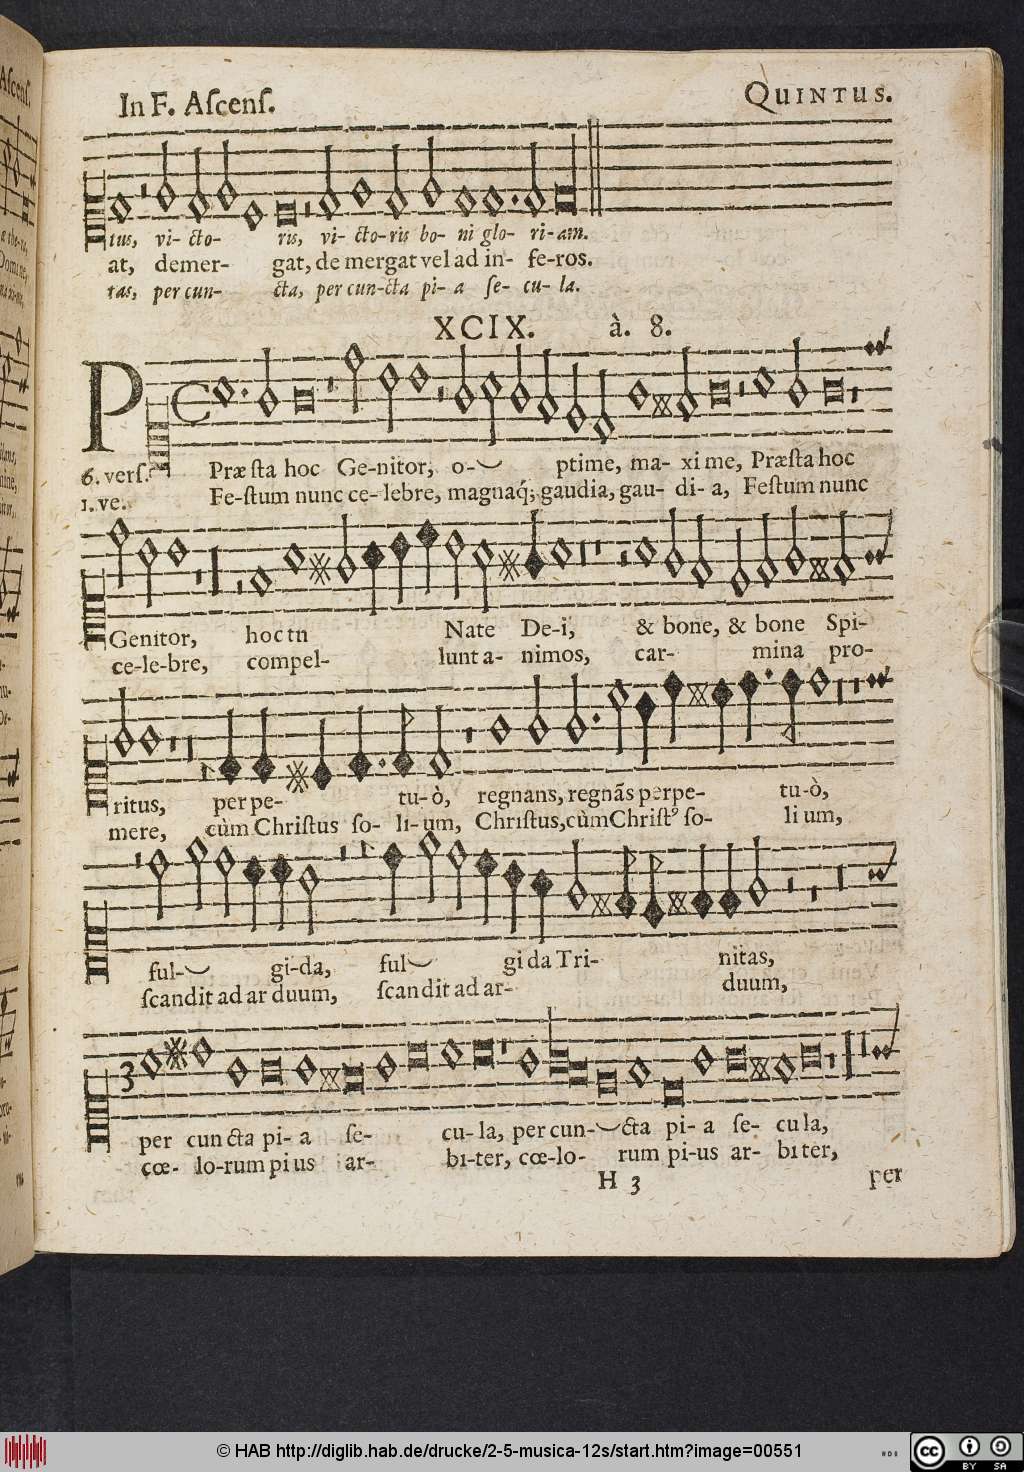 In F. Aſcenſ.
QUINTUS.
tus, vi- cto- ris, vi- cto-ris bo- ni glo- ri-am.
at, demer- gat, de mergat vel ad in- fe-ros.
tas, per cun- cta, per cun-cta pi- a ſe- cu- la.
XCIX. à. 8.
P
6. verſ. Præſta hoc Ge-nitor, o- ptime, ma- xi me, Præſta hoc
1. ve. Fe-ſtum nunc ce- lebre, magnaq́; gaudia, gau- di- a, Feſtum nunc
Genitor, hoc tn Nate De-i, & bone, & bone Spi-
ce-le-bre, compel- lunt a- nimos, car- mina pro-
ritus, per pe- tu-ò, regnans, regnãs perpe- tu-ò,
mere, cùm Chriſtus ſo- li-um, Chriſtus, cùm Chriſt⁹ ſo- li um,
ful- gi-da, ful gi da Tri- nitas,
ſcandit ad ar duum, ſcandit ad ar- duum,
3
per cun cta pi- a ſe- cu-la, per cun- cta pi- a ſe- cu la,
cœ- lo-rum pi us ar- bi-ter, cœ-lo- rum pi-us ar- bi ter,
H 3
per
© HAB http://diglib.hab.de/drucke/2-5-musica-12s/start.htm?image=00551
cc BY SA